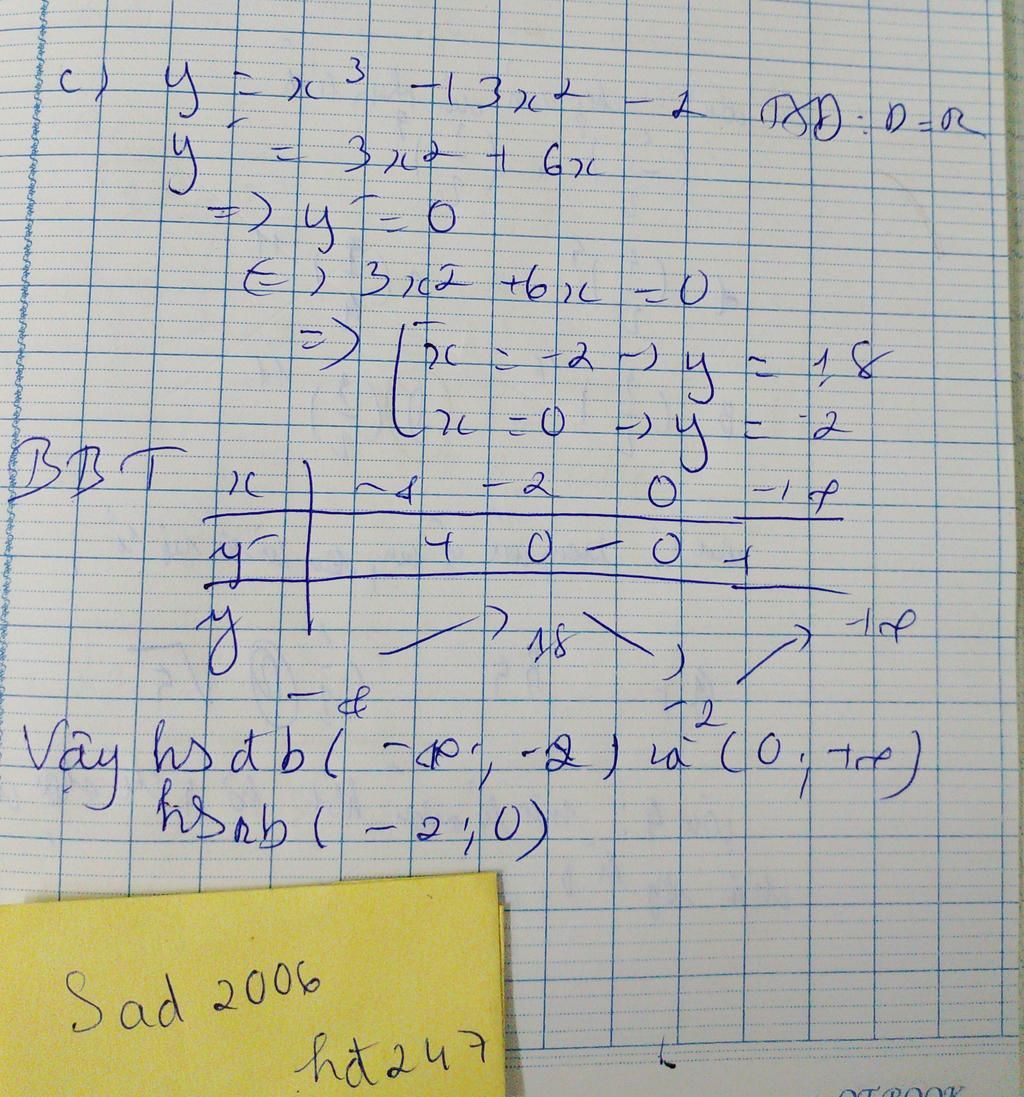 c) y = x³ + 3x² - 2 TXĐ: D = R
y' = 3x² + 6x
=> y' = 0
<=> 3x² + 6x = 0
=> [ x = -2 -> y = 18
x = 0 -> y = -2
BBT x | -∞ -2 0 +∞
y' | + 0 - 0 +
y 18 +∞
-∞ -2
Vậy hs đb (-∞; -2) và (0; +∞)
hsnb (-2; 0)
Sad 2006
hđ247